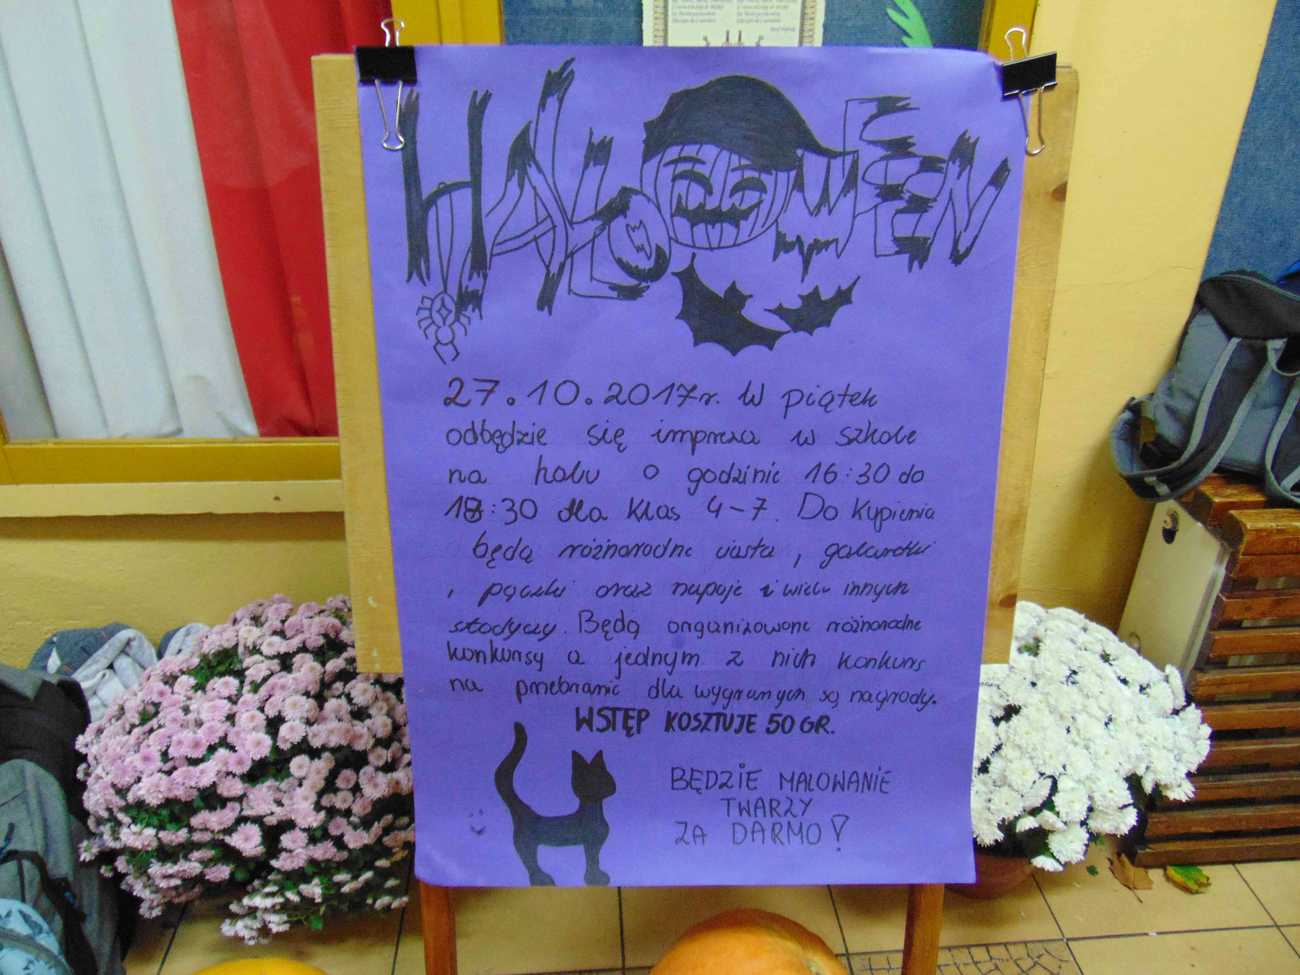 HALLOWEEN
27.10.2017r. W piątek
odbędzie się impreza w szkole
na holu o godzinie 16:30 do
18:30 dla klas 4-7. Do kupienia
będą różnorodne ciasta, galaretki
, pączki oraz napoje i wiele innych
słodyczy. Będą organizowane różnorodne
konkursy a jednym z nich konkurs
na przebranie dla wygranych są nagrody.
WSTĘP KOSZTUJE 50 GR.
BĘDZIE MALOWANIE
TWARZY
ZA DARMO!